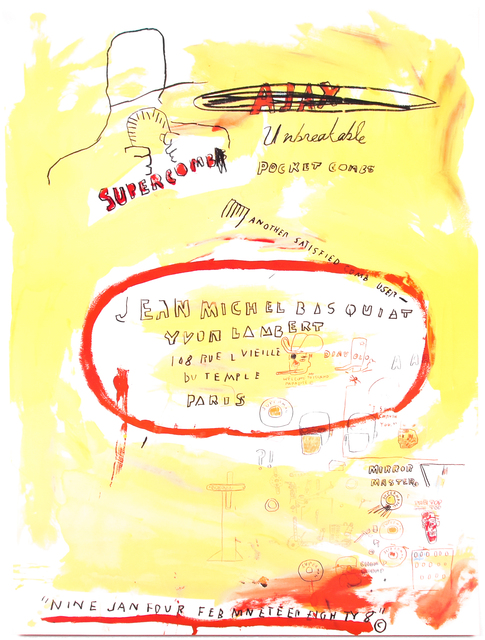 AJAX
Unbreakable
POCKET COMBS
SUPERCOMB
ANOTHER SATISFIED COMB USER—
JEAN MICHEL BASQUIAT
YVON LAMBERT
108 RUE VIEILLE
DU TEMPLE
PARIS
MIRROR
MASTER.
"NINE JAN FOUR FEB NINETEEN EIGHTY 8" ©